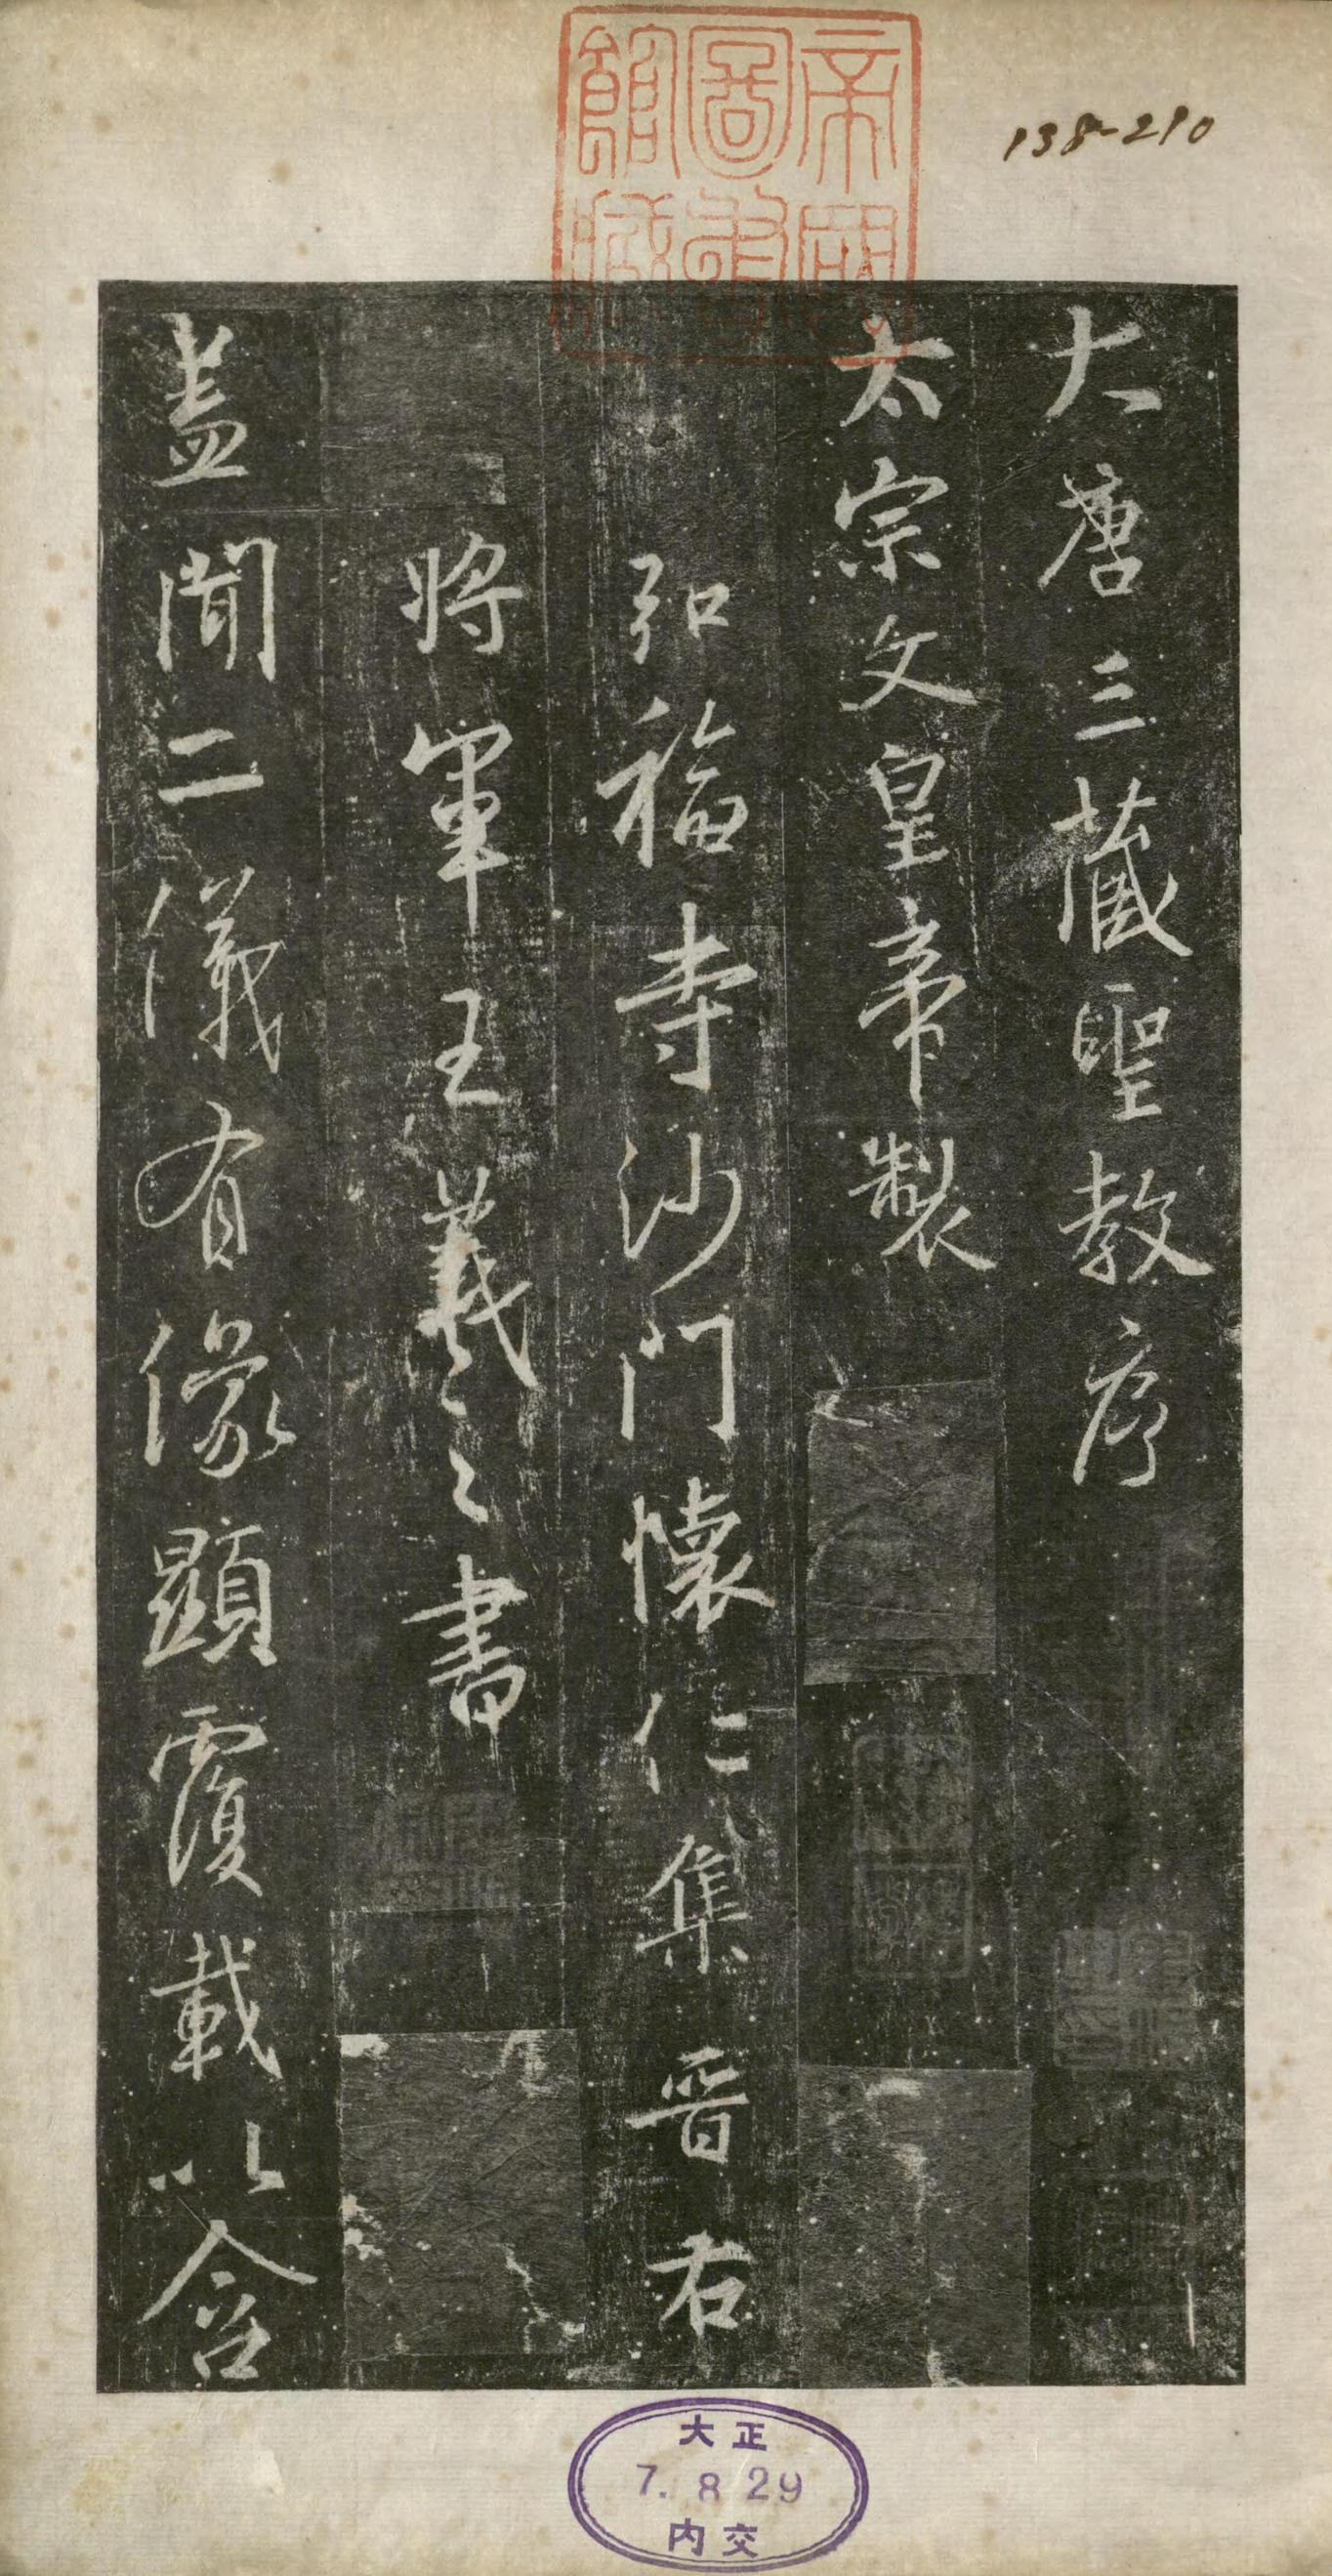 138-210
帝國圖書館藏
大唐三藏聖教序
太宗文皇帝製
弘福寺沙門懷仁集晉右
將軍王羲之書
蓋聞二儀有像顯覆載以含
大正
7.8.29
内交